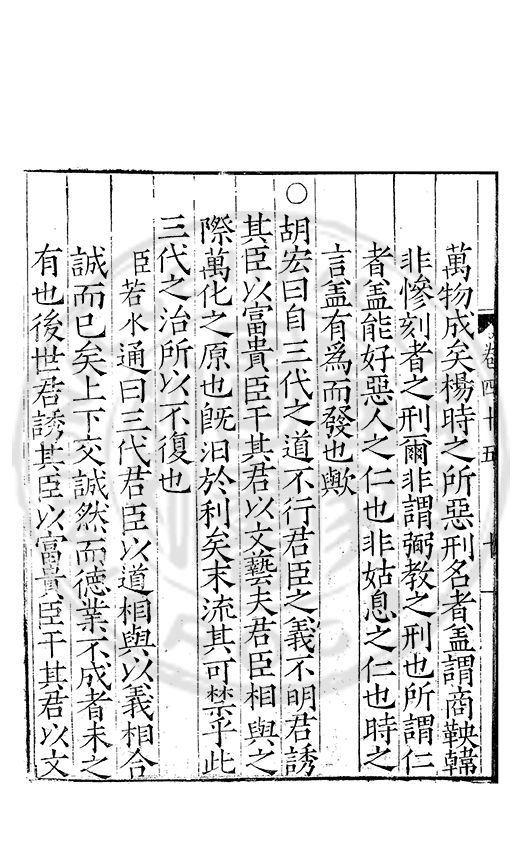 卷四十五
十
萬物成矣楊時之所惡刑名者盖謂商鞅韓
非慘刻者之刑爾非謂弼教之刑也所謂仁
者盖能好惡人之仁也非姑息之仁也時之
言盖有爲而發也歟
○胡宏曰自三代之道不行君臣之義不明君誘
其臣以富貴臣干其君以文藝夫君臣相與之
際萬化之原也旣汩於利矣末流其可禁乎此
三代之治所以不復也
臣若水通曰三代君臣以道相與以義相合
誠而已矣上下交誠然而德業不成者未之
有也後世君誘其臣以富貴臣干其君以文